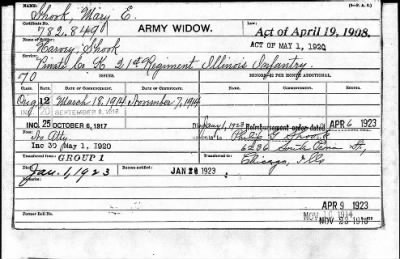 Shook, Mary E.
Certificate No.
782.849
ARMY WIDOW.
Act of April 19, 1908.
ACT OF MAY 1, 1920
Harvey Shook
Private Co K 21st Regiment Illinois Infantry.
ISSUED.
CLASS.
RATE.
DATE OF COMMENCEMENT.
DATE OF CERTIFICATE.
Orig 12 March 18, 1914. November 7, 1914
INC. 25 OCTOBER 6, 1917
Jany 1, 1923 Reimbursement order dated APR 6 1923
No Atty.
to Philip Shook
Inc 30 May 1, 1920
6236 South Peoria St,
Transferred from:
GROUP 1
Transferred to:
Chicago, Ills
Died
Bureau notified:
Jan. 1, 1923
JAN 20 1923
APR 9 1923
Former Roll No.
NOV 10 1914